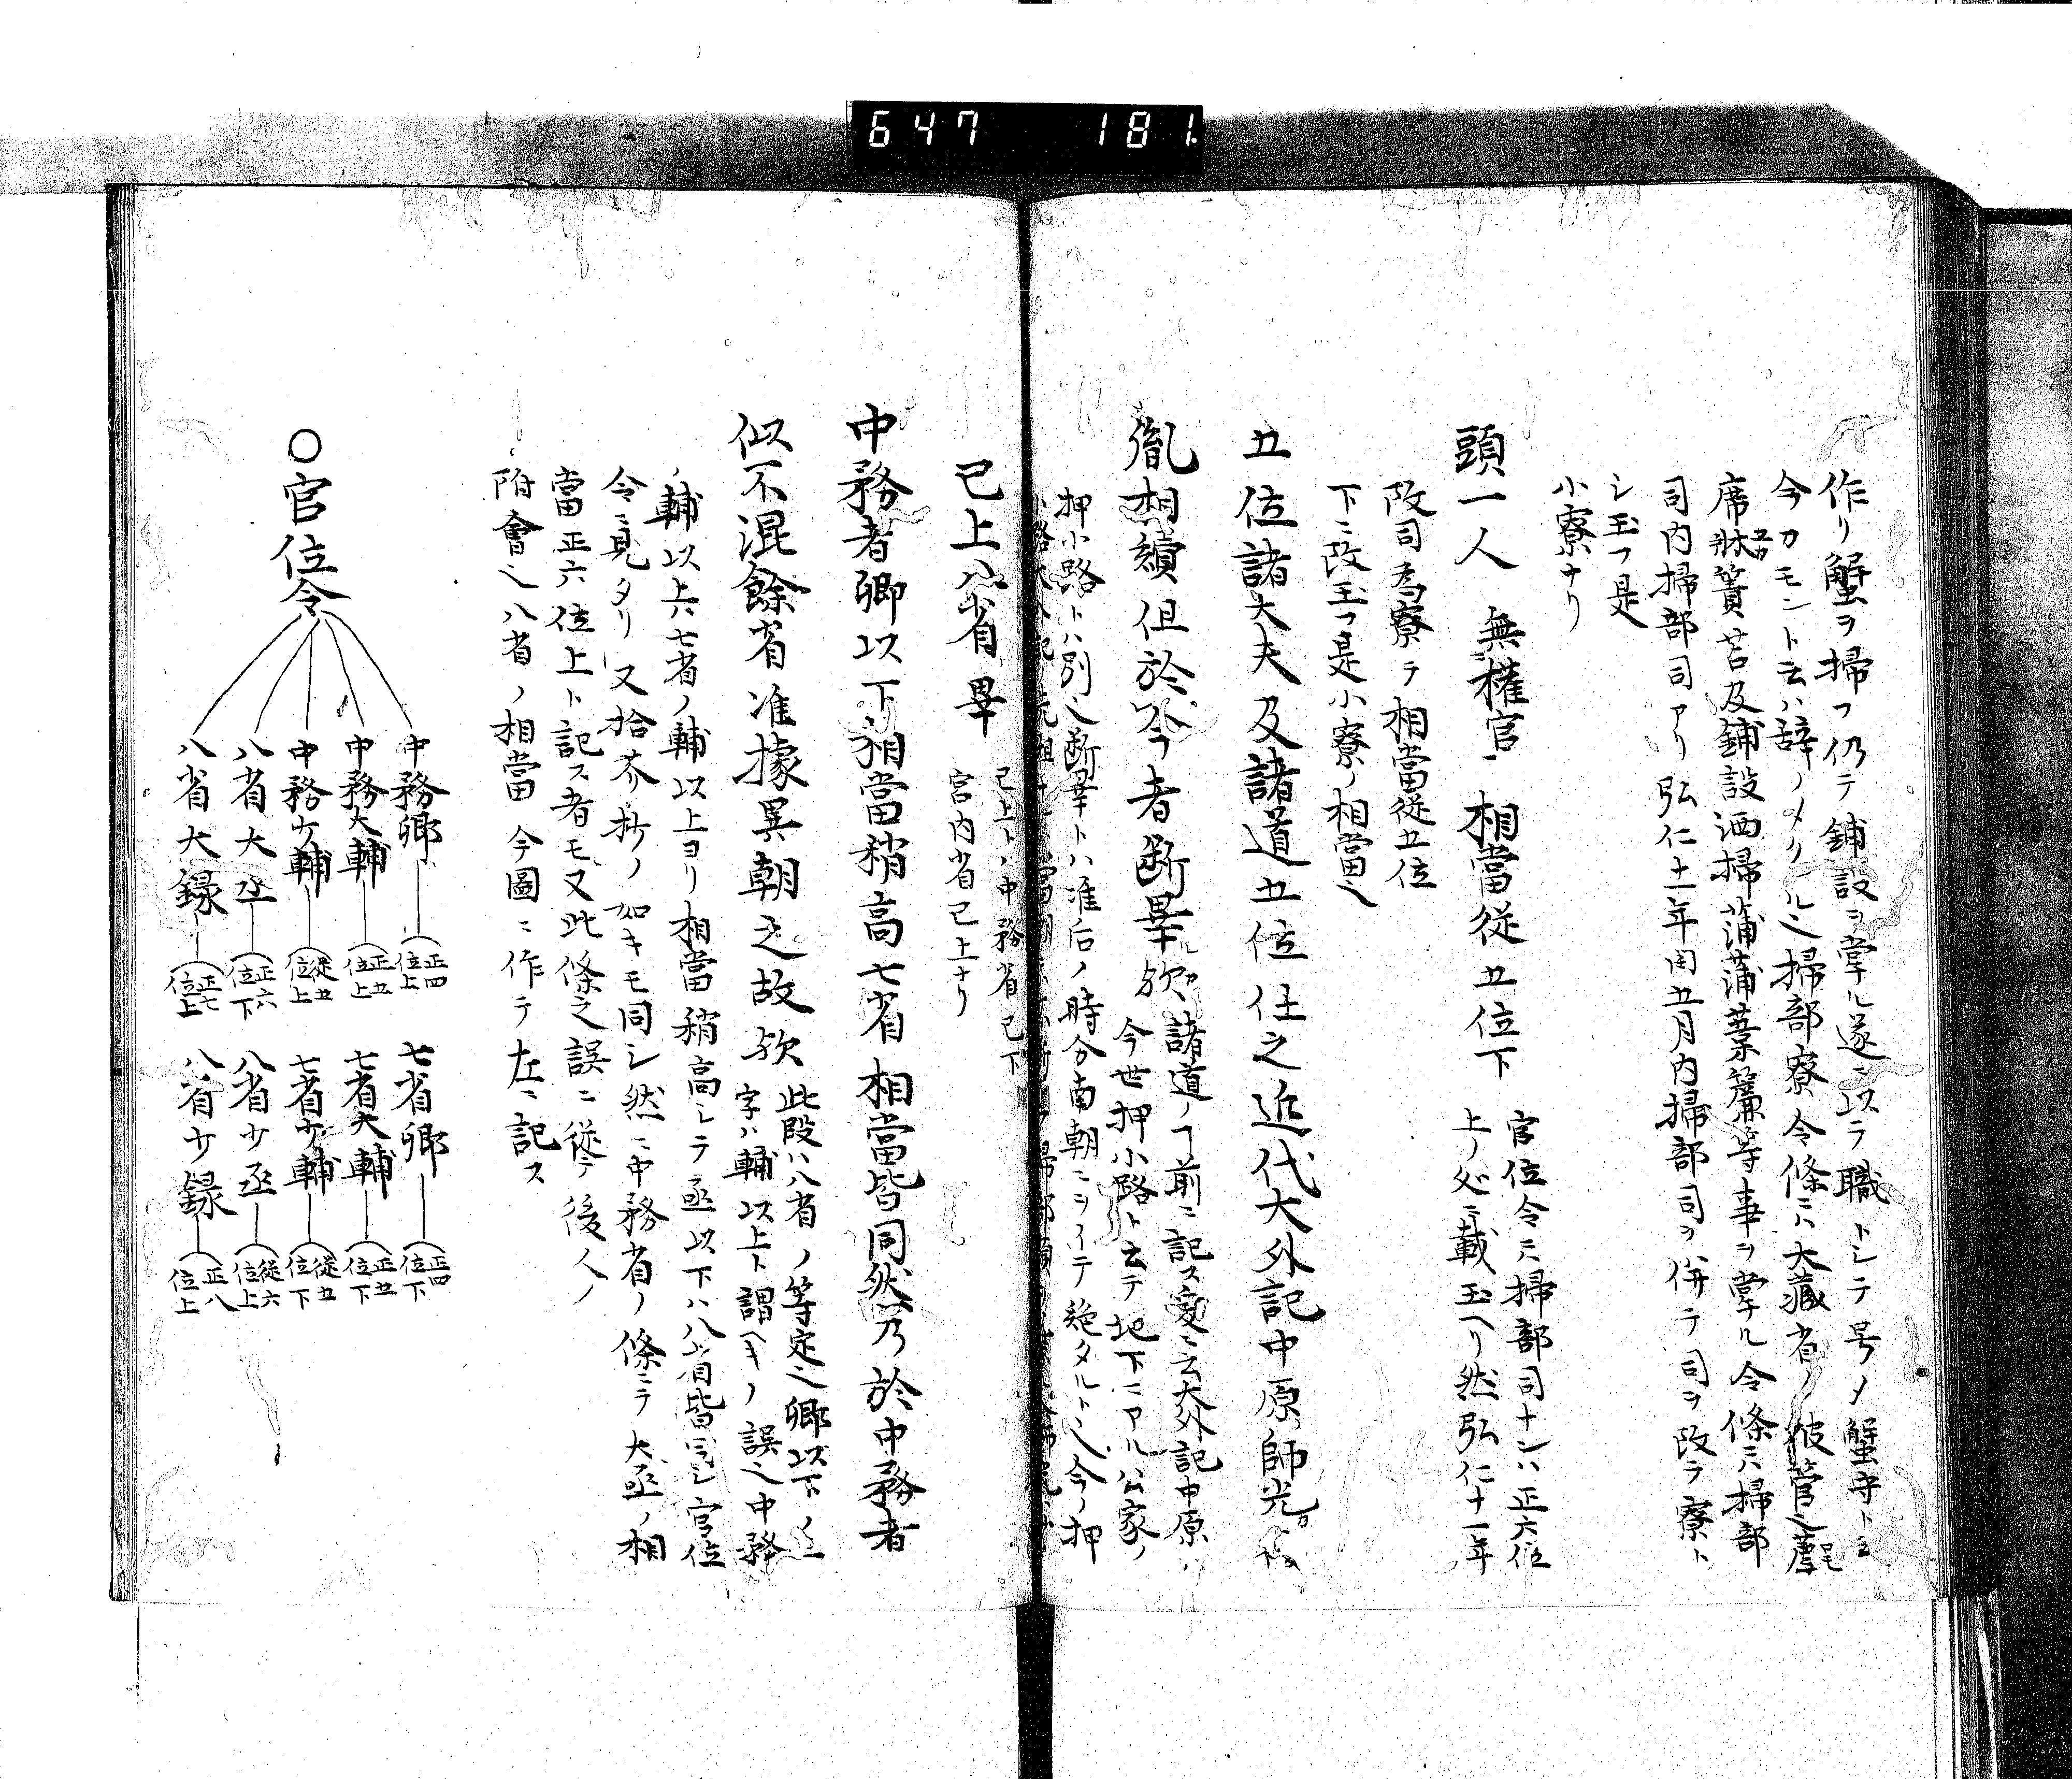 647 181
作リ蟹ヲ掃フ仍テ鋪設ヲ掌ル遂ニ以テ職トシテ号〆蟹守ト云
今カモント云ハ辞ノ〆タル也掃部寮令條ニハ大蔵省ノ被管也
席牀簀苫及鋪設洒掃蒲蒲葉簾等事ヲ掌ル令條ニハ掃部
司内掃部司アリ弘仁十一年閏五月内掃部司ヲ併テ司ヲ改テ寮ト
シ玉フ是
小寮ナリ
頭一人 無權官 相當從五位下
官位令ニハ掃部司ナシハ正六位
上ノ処ニ載玉ヘリ然弘仁十一年
改司為寮テ相當從五位
下ニ改玉フ是小寮ノ相當也
五位諸大夫及諸道五位任之近代大外記中原師光
胤相續但於今者断畢歟
諸道ノ前ニ記ス爰ニ云大外記中原ハ
今世押小路ト云テ地下ニアル公家ノ
押小路トハ別也断畢トハ准后ノ時分南朝ニヲイテ絶タルト也今ノ押
已上八省畢
已上トハ中務省已下
宮内省已上ナリ
中務者卿以下相當稍高七省相當皆同然乃於中務者
似不混餘省准據異朝之故歟
此段ハ八省ノ等定也卿以下ノ下ノ
字ハ輔以上ト謂ヘキノ誤也中務
ノ輔以上ハ七省ノ輔以上ヨリ相當稍高シテ丞以下ハ八省皆同シ官位
令ニ見タリ又拾芥抄ノ如キモ同シ然ニ中務省ノ條ニテ大丞ノ相
當正六位上ト記ス者モ又此條之誤ニ從テ後人ノ
附會也八省ノ相當今圖ニ作テ左ニ記ス
○官位令
中務卿 正四位上 七省卿 正四位下
中務大輔 正五位上 七省大輔 正五位下
中務少輔 從五位上 七省少輔 從五位下
八省大丞 正六位下 八省少丞 從六位上
八省大録 正七位上 八省少録 正八位上